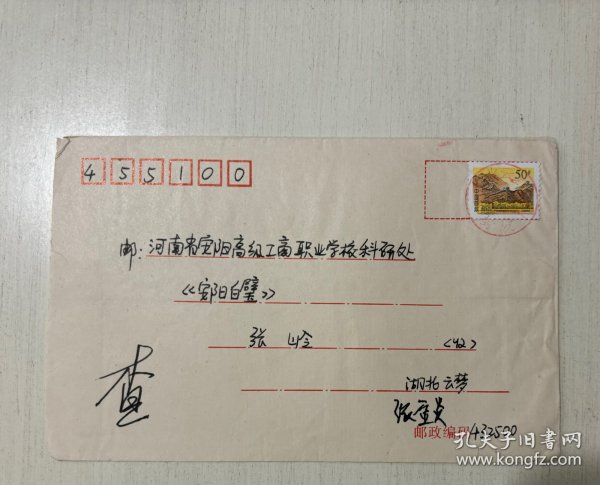 455100
50分
邮:河南省安阳高级工商职业学校科研处
《安阳白璧》
张 岭 (收)
湖北云梦
张重员
邮政编码432500
查
孔夫子旧书网
www.kongfz.com